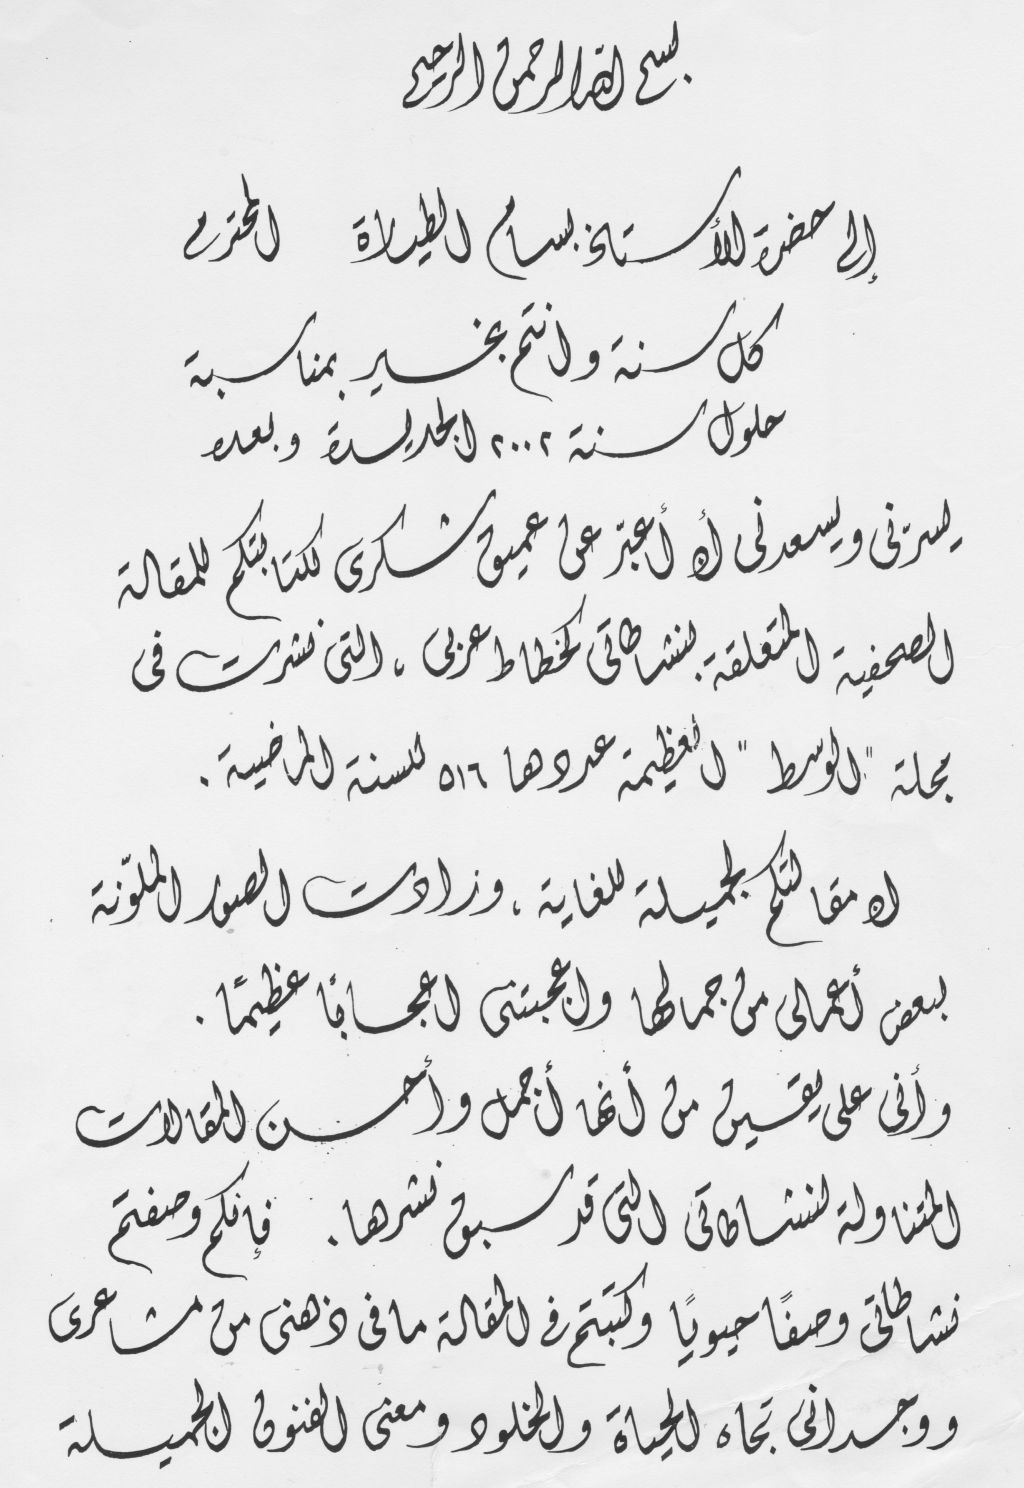 بسم الله الرحمن الرحيم
إلى حضرة الأستاذ بسام الطيارة المحترم
كل سنة وانتم بخير بمناسبة
حلول سنة ٢٠٠٢ الجديدة وبعد
يسرّنى ويسعدنى أن أعبّر عن عميق شكرى لكتابتكم للمقالة
الصحفية المتعلقة بنشاطاتى كخطاط عربى ، التى نشرت فى
مجلة "الوسط" العظيمة عددها ٥١٦ للسنة الماضية .
ان مقالتكم لجميلة للغاية ، وزادت الصور الملوّنة
لبعض أعمالى من جمالها واعجبتنى اعجابًا عظيمًا .
وأنى على يقين من أنها أجمل وأحسن المقالات
المتناولة لنشاطاتى التى قد سبق نشرها . فإنكم وصفتم
نشاطاتى وصفًا حيويًا وكتبتم فى المقالة ما فى ذهنى من مشاعرى
ووجدانى تجاه الحياة والخلود ومعنى الفنون الجميلة